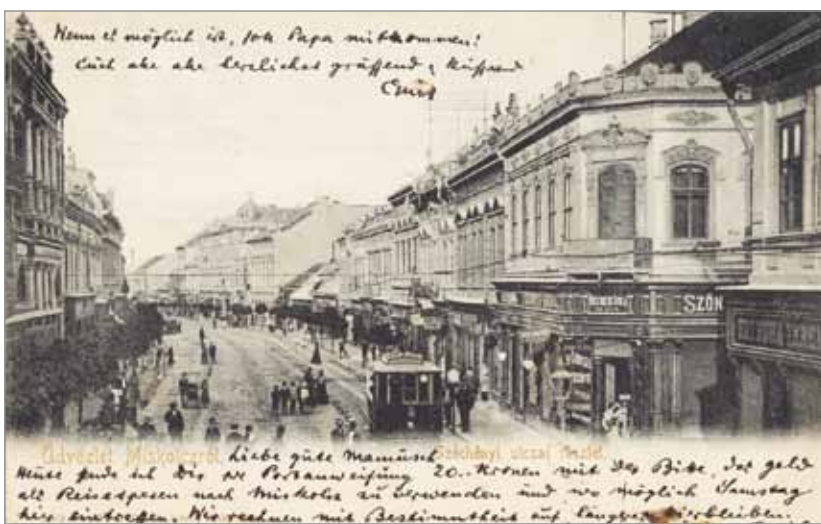 Wenn es möglich ist, soll Papa mitkommen!
Euch alle alle herzlichst grüssend & küssend
Ernst
SZÓN
Üdvözlet Miskolczról
Széchényi utczai részlet.
Liebe gute Mamusch
Heute sende ich Dir per Postanweisung 20.- Kronen mit der Bitte, das Geld
als Reisespesen nach Miskolcz zu verwenden und wo möglich Samstag
hier eintreffen. Wir rechnen mit Bestimmtheit auf längeres Hierbleiben.